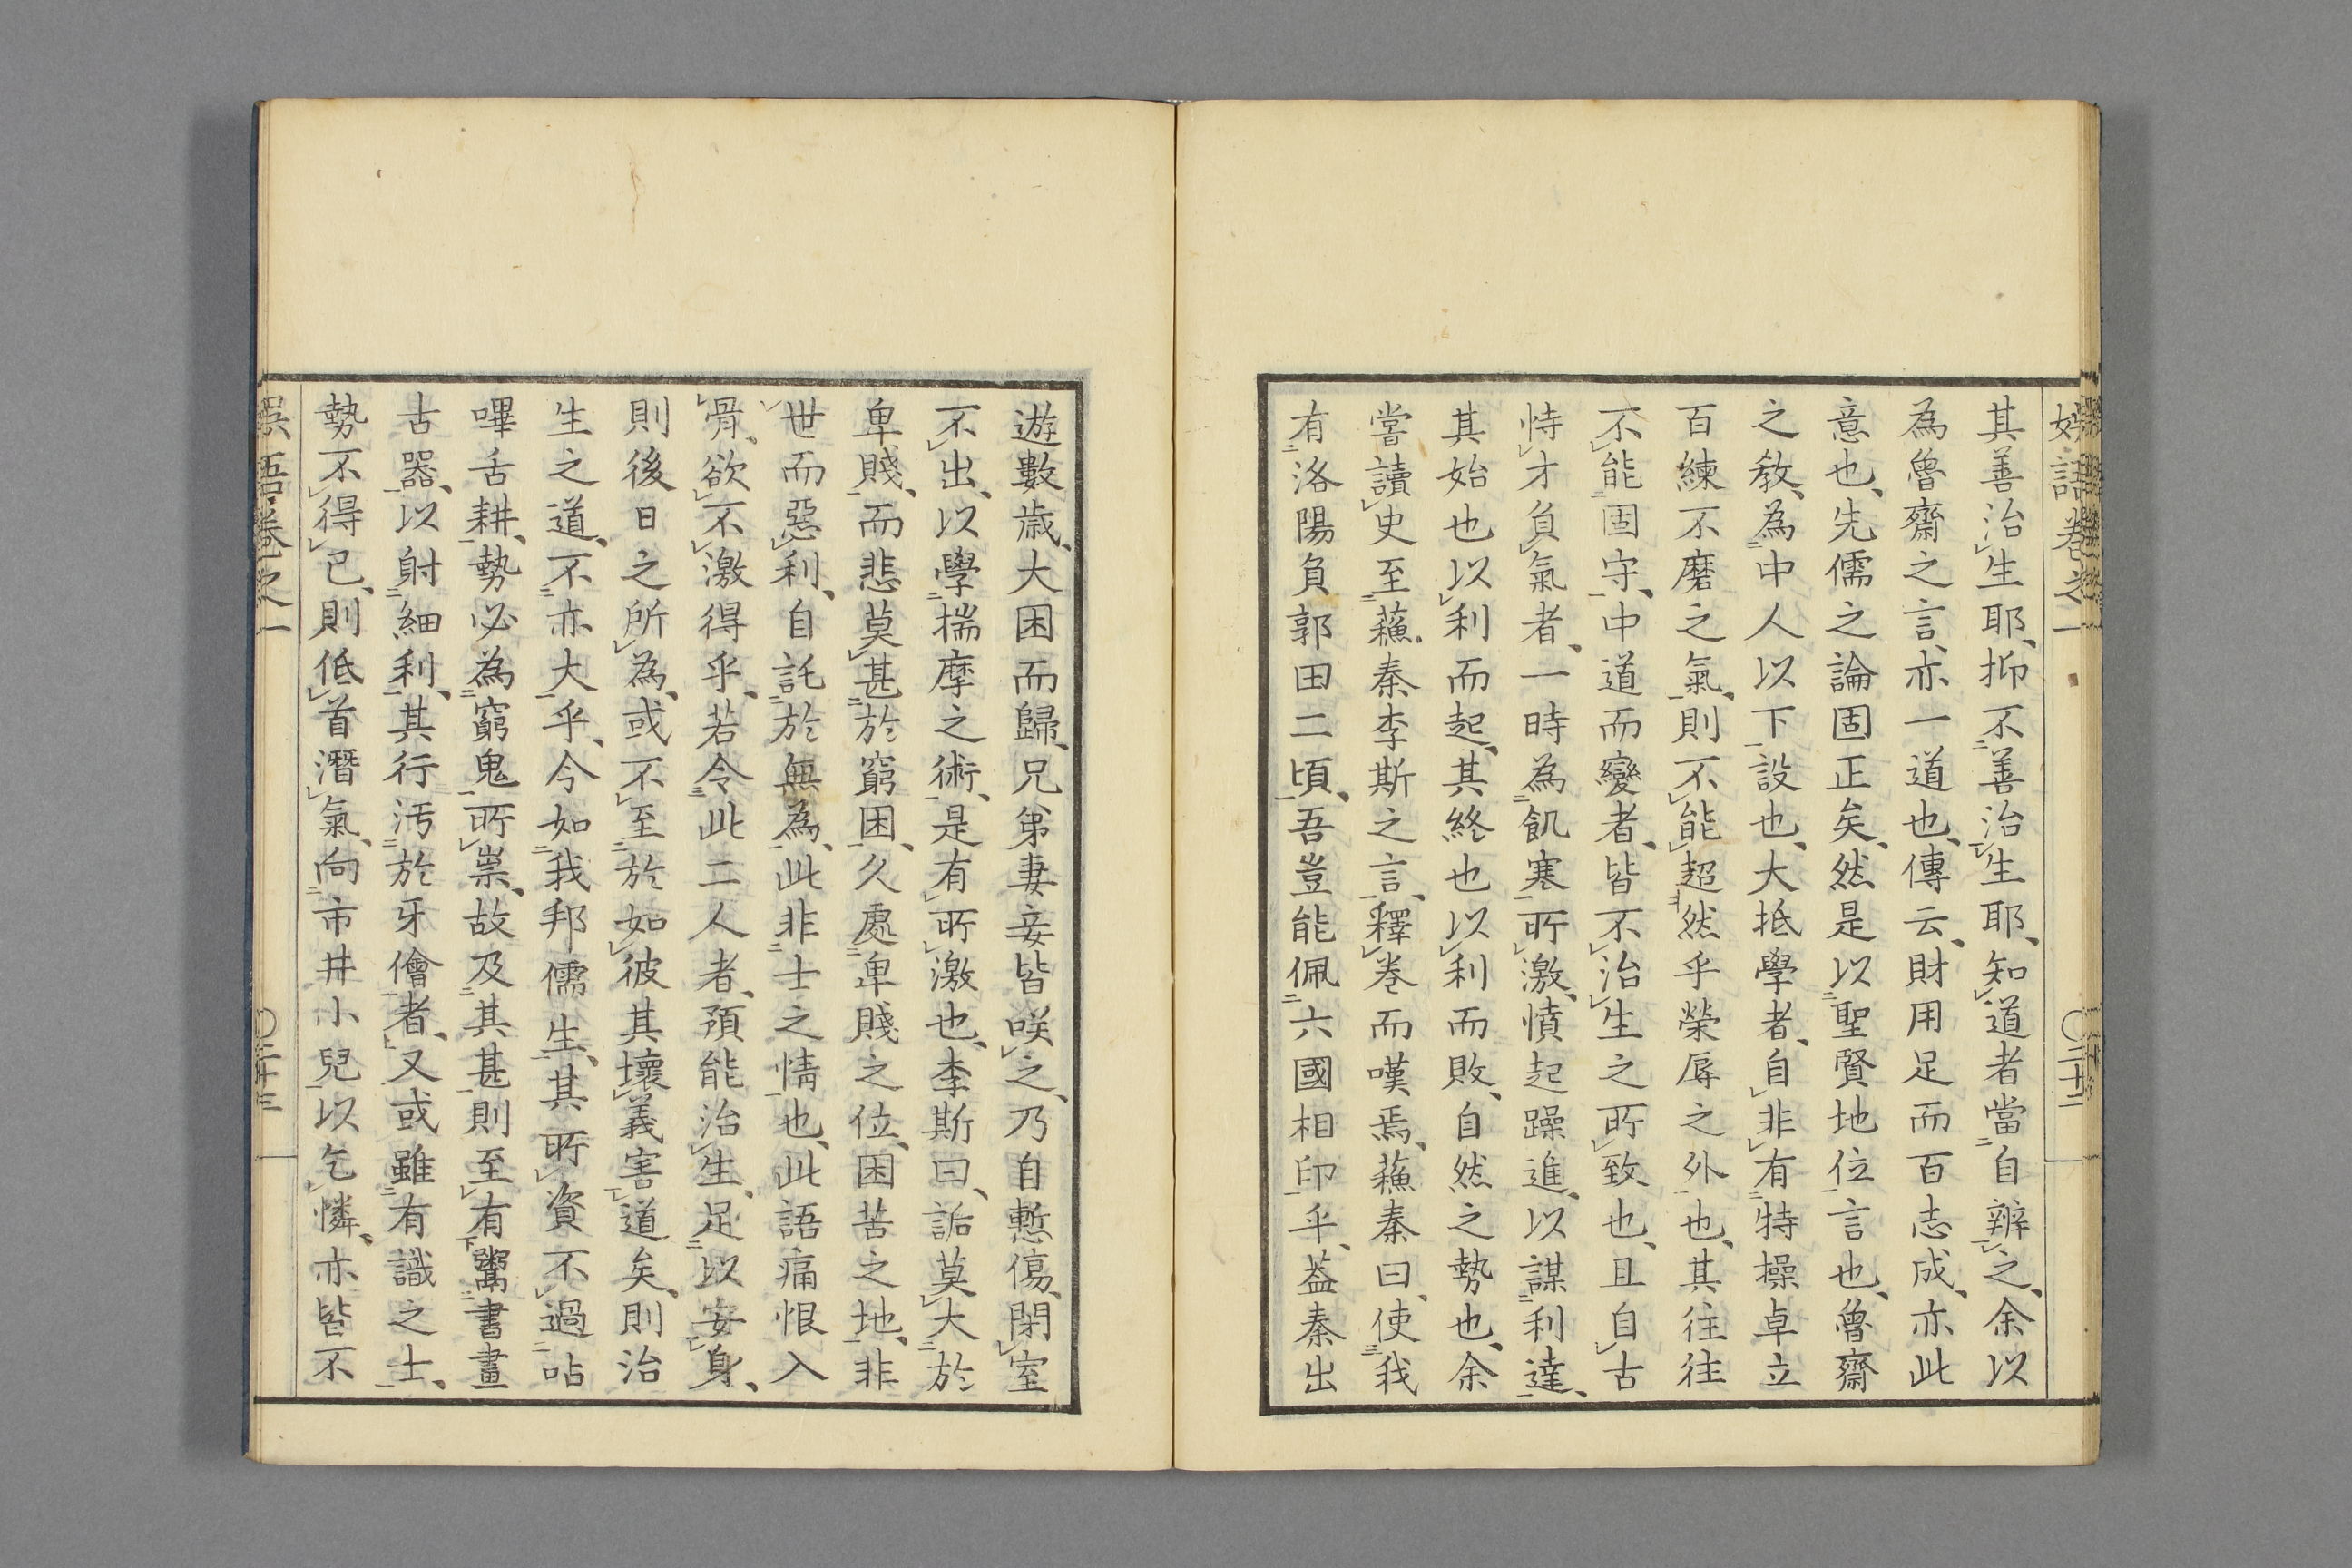 其善治生耶、抑不善治生耶、知道者當自辨之、余以
為魯齋之言、亦一道也、傳云、財用足而百志成、亦此
意也、先儒之論固正矣、然是以聖賢地位言也、魯齋
之教、為中人以下設也、大抵學者、自非有特操卓立
百練不磨之氣、則不能超然乎榮辱之外也、其往往
不能固守、中道而變者、皆不治生之所致也、且自古
恃才負氣者、一時為飢寒所激、憤起躁進、以謀利達、
其始也以利而起、其終也以利而敗、自然之勢也、余
嘗讀史至蘓秦李斯之言、釋卷而嘆焉、蘓秦曰、使我
有洛陽負郭田二頃、吾豈能佩六國相印乎、葢秦出
遊數歳、大困而歸、兄弟妻妾皆咲之、乃自慙傷、閉室
不出、以學揣摩之術、是有所激也、李斯曰、詬莫大於
卑賤、而悲莫甚於窮困、久處卑賤之位、困苦之地、非
世而惡利、自託於無為、此非士之情也、此語痛恨入
骨、欲不激得乎、若令此二人者、預能治生、足以安身、
則後日之所為、或不至於如彼其壞義害道矣、則治
生之道、不亦大乎、今如我邦儒生、其所資不過呫
嗶舌耕、勢必為窮鬼所祟、故及其甚則至有鬻書畫
古器、以射細利、其行汚於牙儈者、又或雖有識之士、
勢不得已、則低首潛氣、向市井小兒以乞憐、亦皆不
卷之一